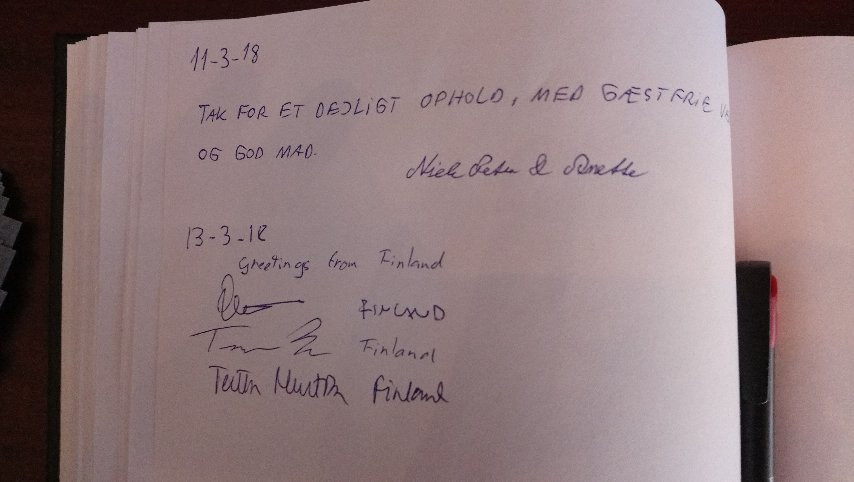 11-3-18
TAK FOR ET DEJLIGT OPHOLD, MED GÆSTFRIE
OG GOD MAD.
Niels Peter & Anette
13-3-18
Greetings from Finland
FINLAND
Finland
Finland